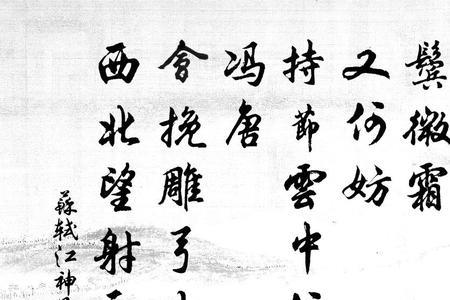 鬓微霜
又何妨
持節雲中
冯唐
會挽雕弓
西北望射
蘇轼江神